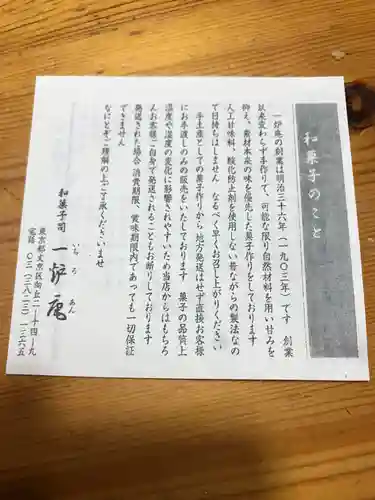 和菓子のこと
一炉庵の創業は明治三十六年（一九〇三年）です　創業
以来変わらず手作りで、可能な限り自然材料を用い甘みを
抑え、素材本来の味を優先した菓子作りをしております
人工甘味料、酸化防止剤を使用しない昔ながらの製法なの
で日持ちはしません　なるべく早くお召し上がりください
手土産としての菓子作りから　地方発送はせず直接お客様
にお手渡しのみの販売をいたしております　菓子の品質上
温度や湿度の変化に影響されやすいため当店からはもちろ
んお客様ご自身で発送されることもお断りしております
発送された場合　消費期限、賞味期限内であっても一切保証
できません
なにとぞご理解の上ご了承くださいませ
和菓子司　一炉庵
いちろあん
東京都文京区向丘二ー十四ー九
電話　〇三（三八二三）一三六五